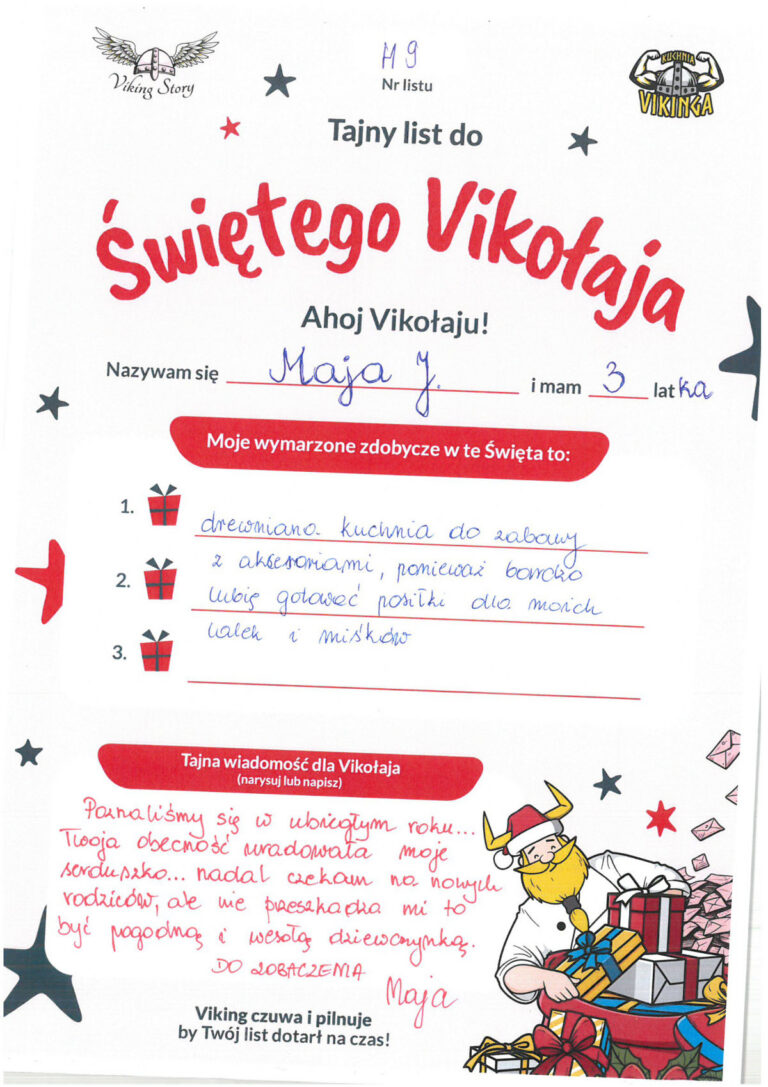 Viking Story
M 9
Nr listu
KUCHNIA
VIKINGA
Tajny list do
Świętego Vikołaja
Ahoj Vikołaju!
Nazywam się Maja J. i mam 3 latka
Moje wymarzone zdobycze w te Święta to:
1. drewniana kuchnia do zabawy
z akcesoriami, ponieważ bardzo
2. lubię gotować posiłki dla moich
lalek i miśków
3.
Tajna wiadomość dla Vikołaja
(narysuj lub napisz)
Poznaliśmy się w ubiegłym roku...
Twoja obecność uradowała moje
serduszko... nadal czekam na nowych
rodziców, ale nie przeszkadza mi to
być pogodną i wesołą dziewczynką.
DO ZOBACZENIA
Maja
Viking czuwa i pilnuje
by Twój list dotarł na czas!